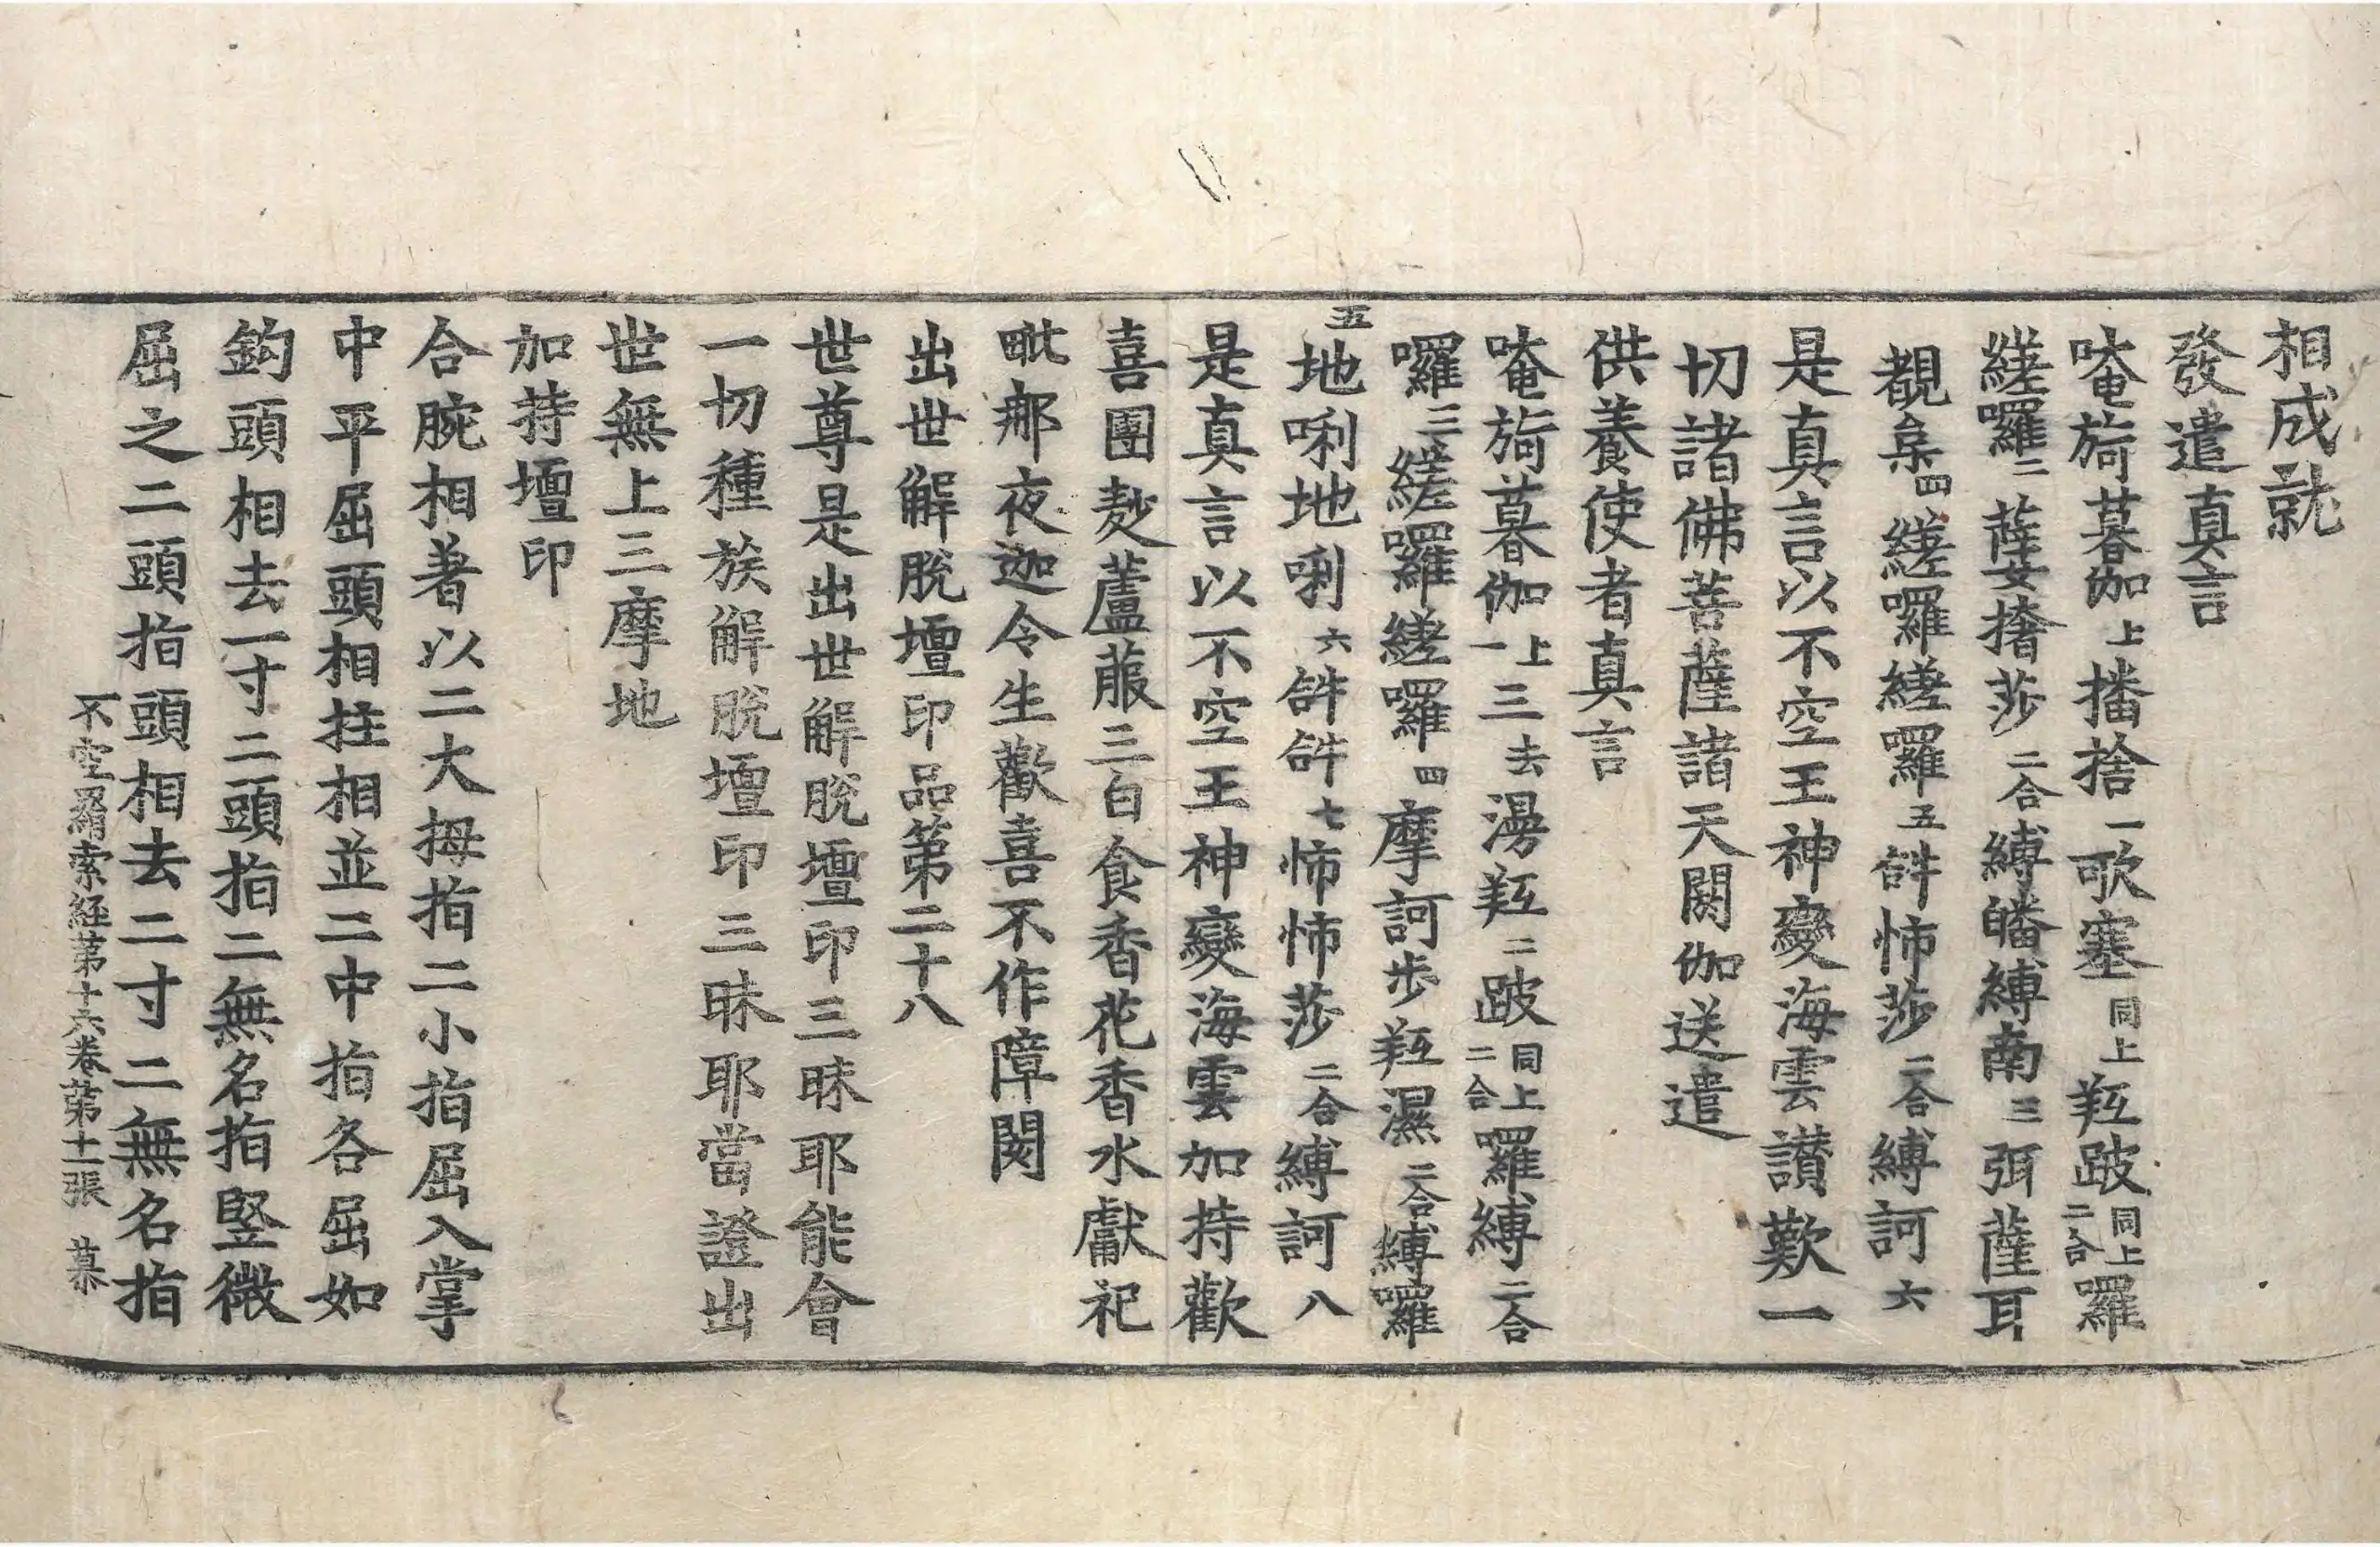 相成就
發遣真言
唵旖暮伽上播捨一歌塞同上羝跛同上二合羅
縒囉二薩婆撦莎二合縛皤縛南三弭薩耳
覩㭇四縒囉縒囉五𤙖怖莎二合縛訶六
是真言以不空王神變海雲讃歎一
切諸佛菩薩諸天閼伽送遣
供養使者真言
唵旖暮伽上一三去漫羝二跛同上二合囉縛二合
囉三縒囉縒囉四摩訶步羝濕二合縛囉
五地唎地唎六𤙖𤙖七怖怖莎二合縛訶八
是真言以不空王神變海雲加持歡
喜團䴬蘆菔三白食香花香水獻祀
毗那夜迦令生歡喜不作障閡
出世解脫壇印品第二十八
世尊是出世解脫壇印三昧耶能會
一切種族解脫壇印三昧耶當證出
世無上三摩地
加持壇印
合腕相著以二大拇指二小指屈入掌
中平屈頭相拄相並二中指各屈如
鈎頭相去一寸二頭指二無名指竪微
屈之二頭指頭相去二寸二無名指
不空羂索經第十六卷第十二張 慕